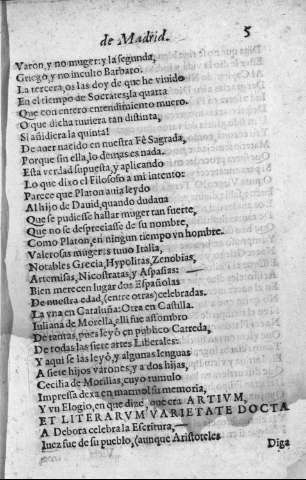 de Madrid. 5
Varon, y no muger: y la segunda,
Griego, y no inculto Barbaro.
La tercera, os las doy de que he viuido
En el tiempo de Socrates, la quarta
Que con entero entendimiento muero.
O que dicha tuuiera tan distinta,
Si añidiera la quinta!
De auer nacido en nuestra Fè Sagrada,
Porque sin ella, lo demas es nada.
Esta verdad supuesta, y aplicando
Lo que dixo el Filosofo a mi intento:
Parece que Platon auia leydo
Al hijo de Dauid, quando dudaua
Que se pudiesse hallar muger tan fuerte,
Que no se despreciasse de su nombre,
Como Platon, en ningun tiempo vn hombre.
Valerosas mugeres tuuo Italia,
Notables Grecia, Hypolitas, Zenobias,
Artemisas, Nicostratas, y Aspasias:
Bien merecen lugar dos Españolas
De nuestra edad, (entre otras) celebradas.
La vna en Cataluña: Otra en Castilla.
Iuliana de Morella, allì fue assombro
De tantas, pues leyò en publico Catreda,
De todas las siete artes Liberales:
Y aqui se las leyò, y algunas lenguas
A siete hijos varones, y a dos hijas,
Cecilia de Morillas, cuyo tumulo
Impressa dexa en marmol su memoria,
Y vn Elogio, en que dize, que era ARTIVM,
ET LITERARVM VARIETATE DOCTA
A Debora celebra la Escritura,
Iuez fue de su pueblo, (aunque Aristoteles
Diga